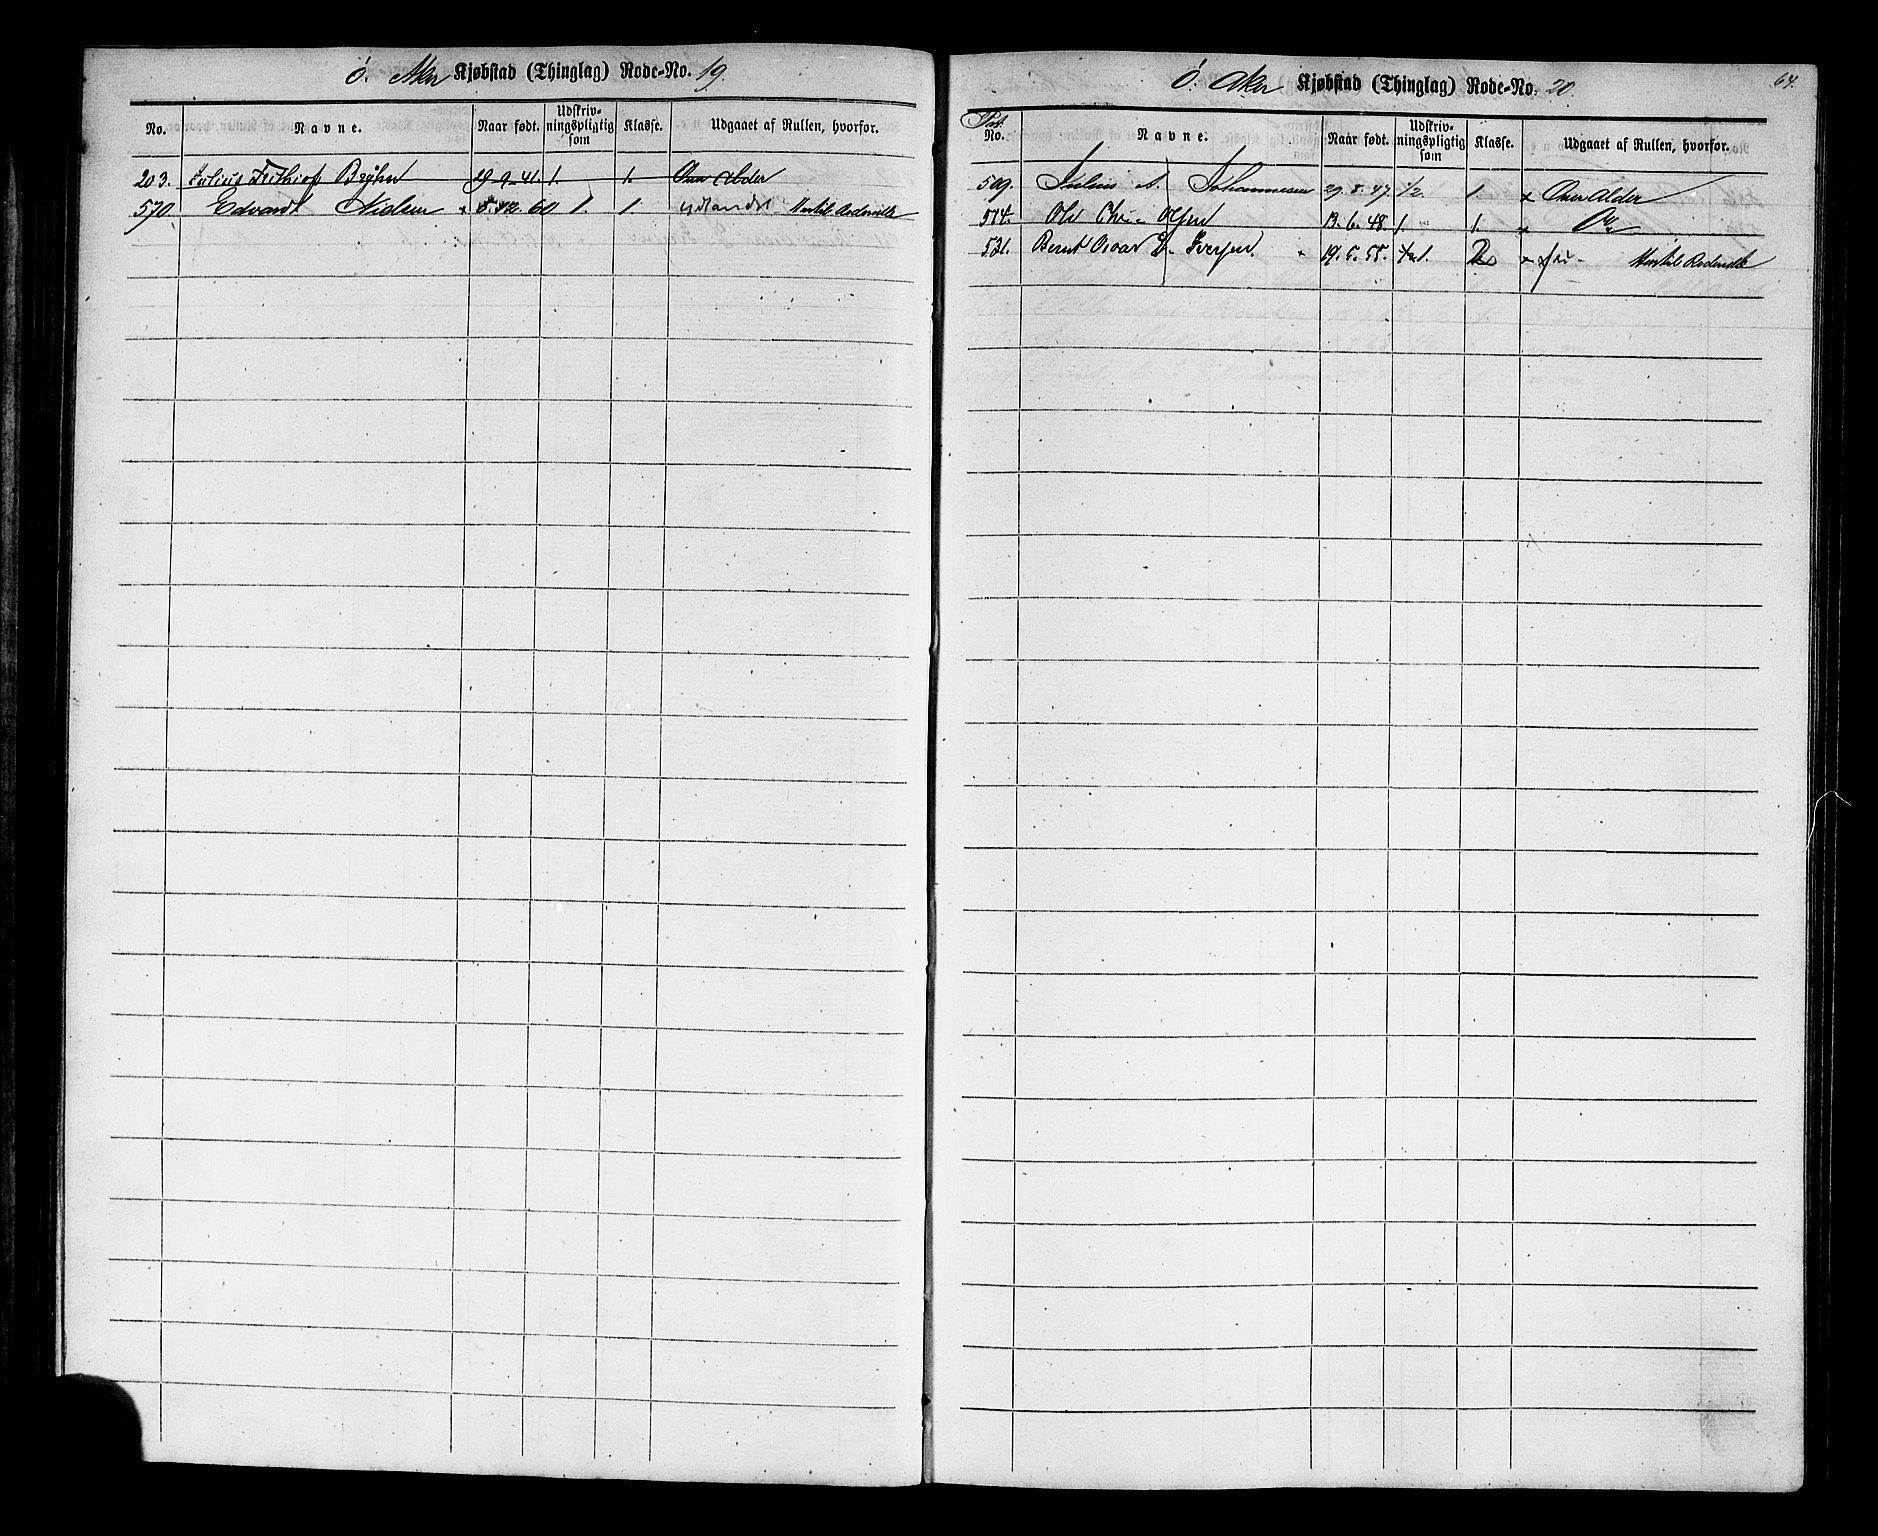 Ö. Aker Kjøbstad (Thinglag) Rode-No. 19.
No. Navne. Naar født. Udskriv-ningspligtig som Klasse. Udgaaet af Rullen, hvorfor.
203. Julius Frithiof 29-9-41. 1. 1. Over Alder
570. Edvardt Nielsen 60 1. 1. udlandst.
64.
Ö. Aker Kjøbstad (Thinglag) Rode-No. 20.
Pat. No. Navne. Naar født. Udskriv-ningspligtig som Klasse. Udgaaet af Rullen, hvorfor.
509. Julius A. Johannesen 29.8.47. 1/2. 1. x Over Alder
514. Ole Chr. Olsen 13.6.48. 1. 1. x Do
531. Bernt Oscar Iversen. 19.5.55.